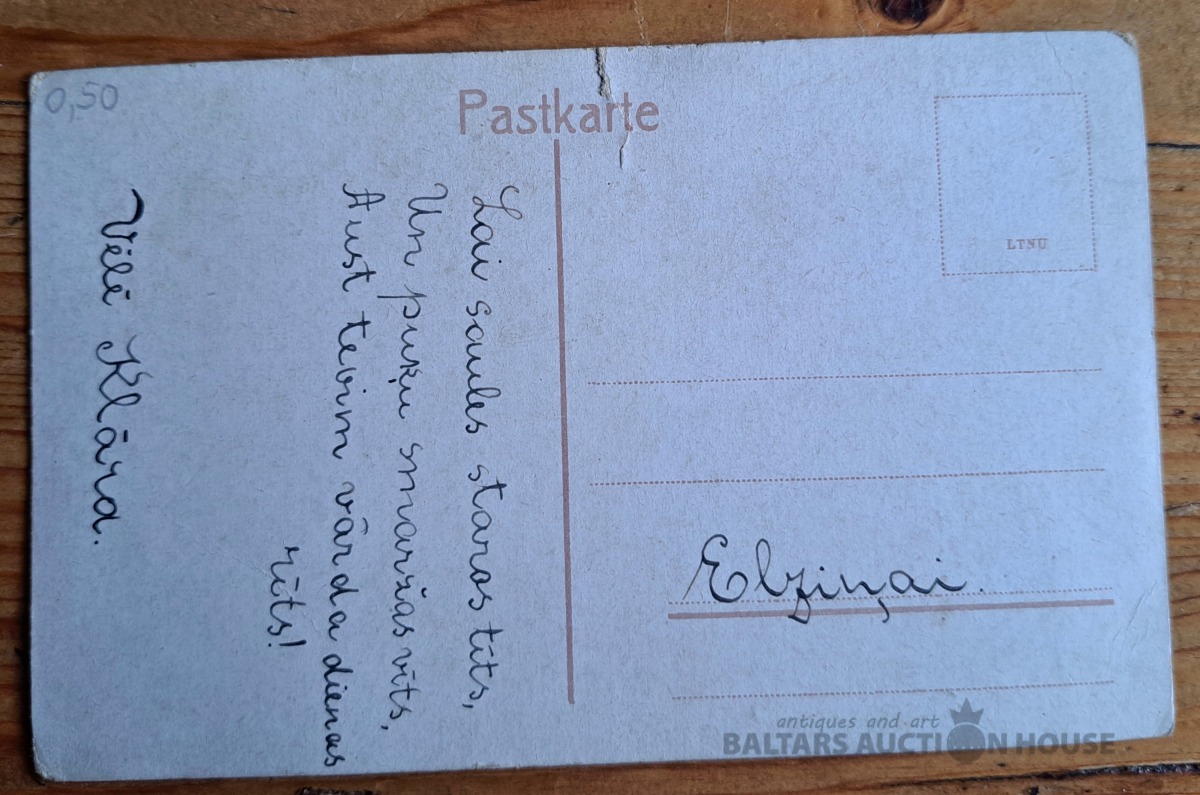 0,50
Pastkarte
LTNU
Lai saules staros tīts,
Un puķu smaržas vīts,
Aust tevim vārda dienas
rīts!
Vēlē Klāra.
Elziņai.
antiques and art
BALTARS AUCTION HOUSE